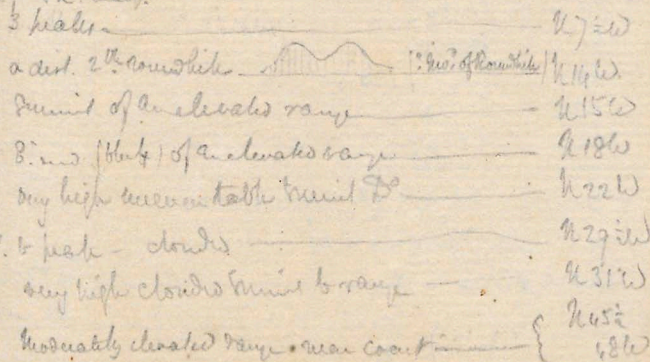 3 peaks N7½W
a dist. 2th Roundhill of Roundhill N14W
Summit of an elevated range N15W
S. end (bluff) of an elevated range N18W
very high uneven table summit Do N22W
peak - clouded N29½W
very high clouded summit to range N31W
Moderately elevated range near coast N45½ 48W